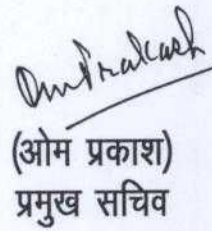 Om Prakash
(ओम प्रकाश)
प्रमुख सचिव